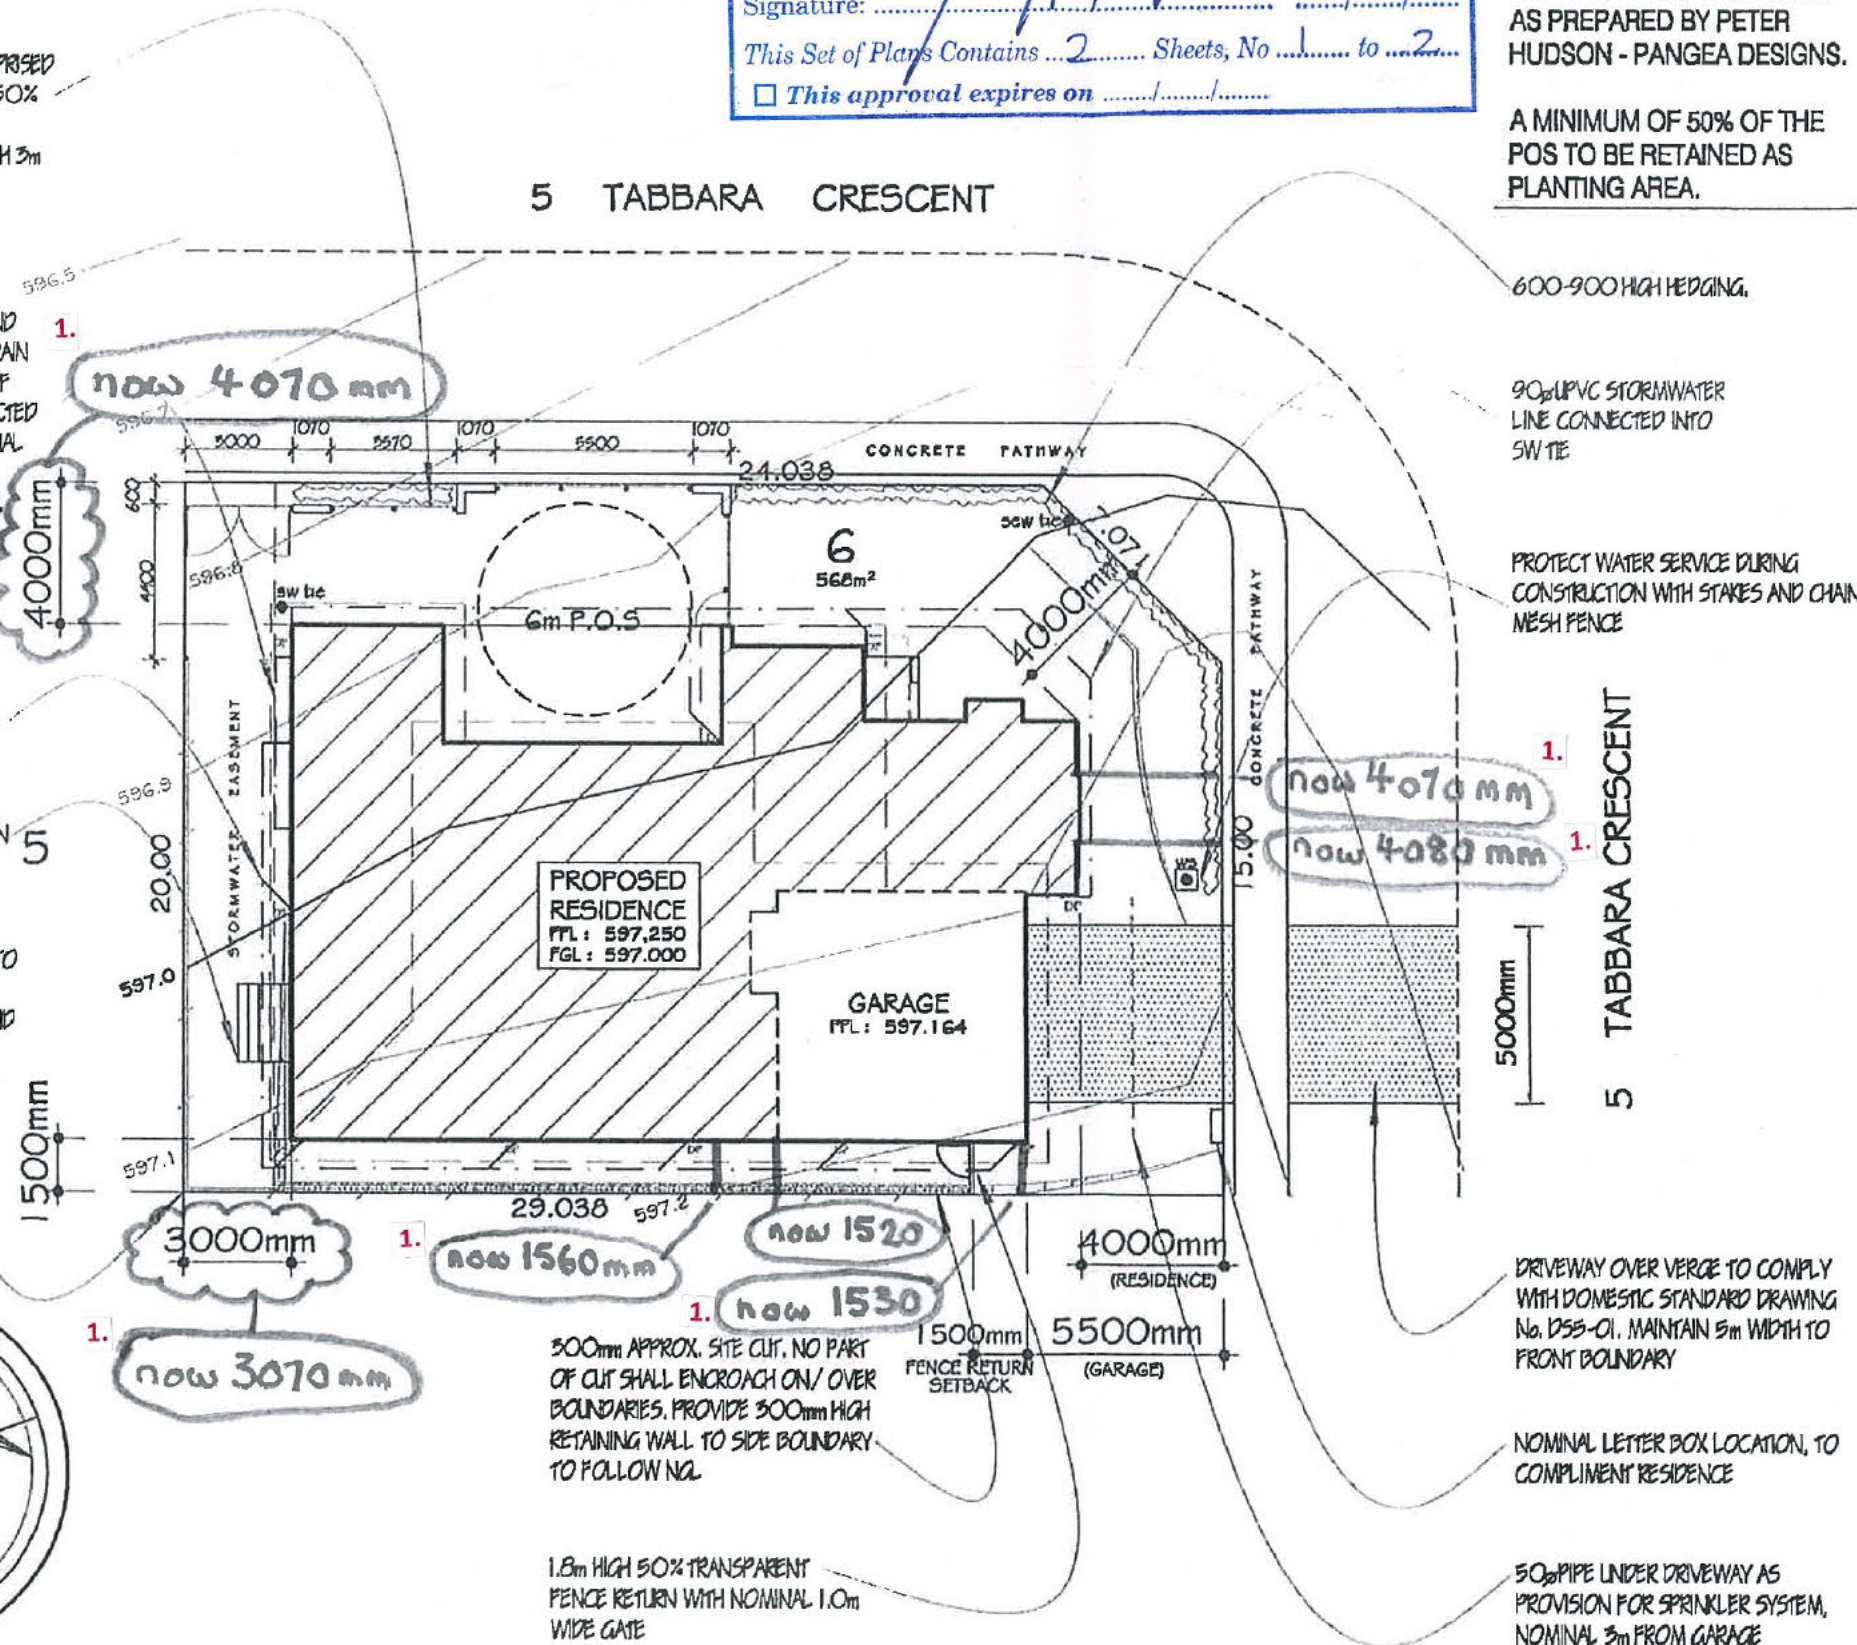 Signature:
This Set of Plans Contains 2 Sheets, No 1 to 2
This approval expires on ......../......../........
AS PREPARED BY PETER
HUDSON - PANGEA DESIGNS.
A MINIMUM OF 50% OF THE
POS TO BE RETAINED AS
PLANTING AREA.
5 TABBARA CRESCENT
600-900 HIGH HEDGING.
90ø UPVC STORMWATER
LINE CONNECTED INTO
SW TIE
PROTECT WATER SERVICE DURING
CONSTRUCTION WITH STAKES AND CHAIN
MESH FENCE
3m
596.5
1.
now 4070 mm
1070 1070 1070
3000 5570 5500
CONCRETE PATHWAY
24.038
600
4400
4000mm
596.8
sw tie
6m P.O.S
6
568m²
sew tie
7.071
4000mm
CONCRETE PATHWAY
STORMWATER EASEMENT
596.9
5
20.00
597.0
PROPOSED
RESIDENCE
FFL: 597.250
FGL: 597.000
GARAGE
FFL: 597.164
1.
now 4070 mm
now 4080 mm
1.
15.00
DP
5000mm
5 TABBARA CRESCENT
1500mm
597.1
29.038
597.2
3000mm
1.
now 3070 mm
1.
now 1560 mm
now 1520
1.
now 1530
4000mm
(RESIDENCE)
1500mm
FENCE RETURN
SETBACK
5500mm
(GARAGE)
300mm APPROX. SITE CUT. NO PART
OF CUT SHALL ENCROACH ON/ OVER
BOUNDARIES. PROVIDE 300mm HIGH
RETAINING WALL TO SIDE BOUNDARY
TO FOLLOW NGL
1.8m HIGH 50% TRANSPARENT
FENCE RETURN WITH NOMINAL 1.0m
WIDE GATE
DRIVEWAY OVER VERGE TO COMPLY
WITH DOMESTIC STANDARD DRAWING
No. DS5-01. MAINTAIN 5m WIDTH TO
FRONT BOUNDARY
NOMINAL LETTER BOX LOCATION, TO
COMPLIMENT RESIDENCE
50ø PIPE UNDER DRIVEWAY AS
PROVISION FOR SPRINKLER SYSTEM,
NOMINAL 3m FROM GARAGE